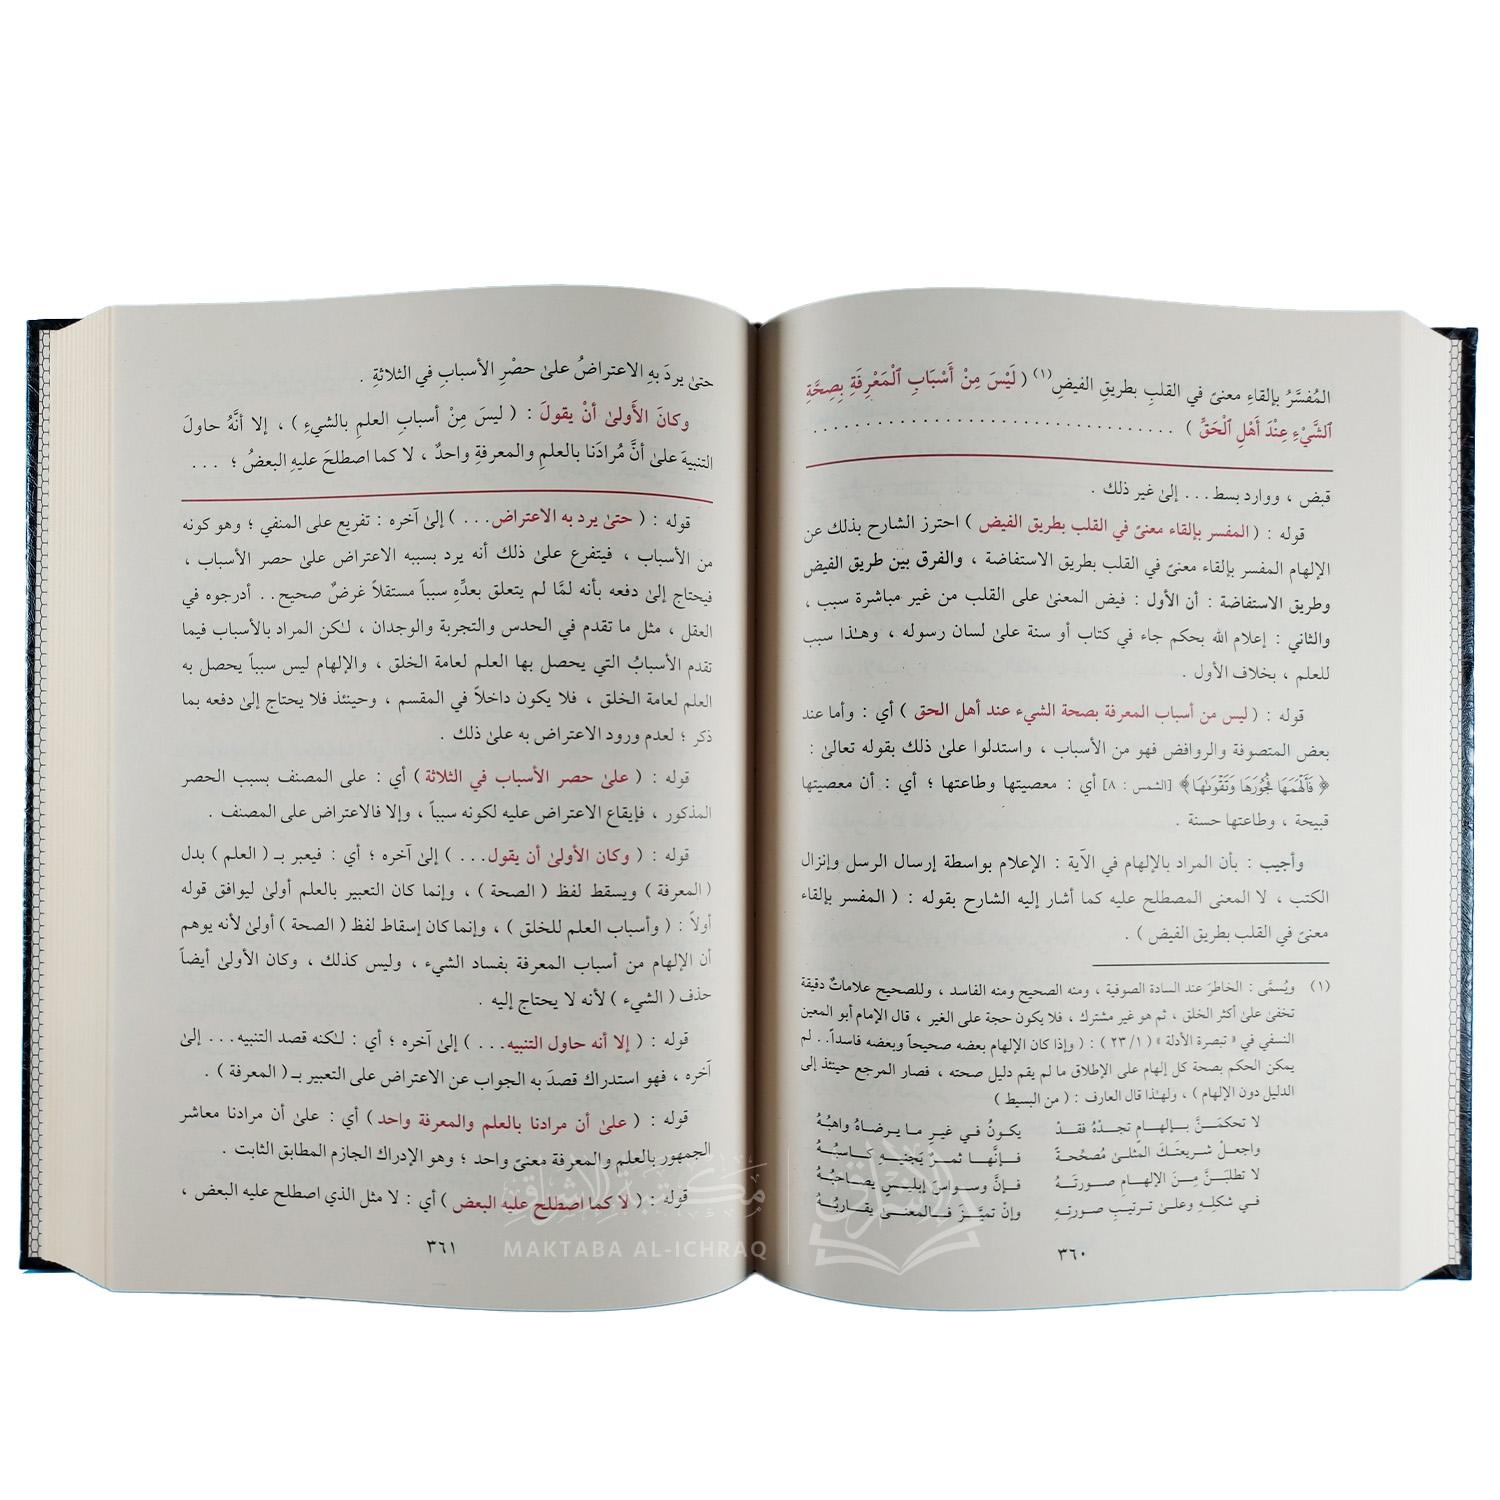 المُفسَّرُ بإلقاءِ معنىً في القلبِ بطريقِ الفيضِ(١) ( لَيْسَ مِنْ أَسْبَابِ ٱلْمَعْرِفَةِ بِصِحَّةِ
ٱلشَّيْءِ عِنْدَ أَهْلِ ٱلْحَقِّ ) . . . . . . . . . . . . . . . . . . . . . . . . . . . . . . . .
قبض ، ووارد بسط. . . إلىٰ غير ذلك .
قوله : ( المفسر بإلقاء معنىً في القلب بطريق الفيض ) احترز الشارح بذلك عن
الإلهام المفسر بإلقاء معنىً في القلب بطريق الاستفاضة ، والفرق بين طريق الفيض
وطريق الاستفاضة : أن الأول : فيض المعنىٰ على القلب من غير مباشرة سبب ،
والثاني : إعلام الله بحكم جاء في كتاب أو سنة علىٰ لسان رسوله ، وهـٰذا سبب
للعلم ، بخلاف الأول .
قوله : ( ليس من أسباب المعرفة بصحة الشيء عند أهل الحق ) أي : وأما عند
بعض المتصوفة والروافض فهو من الأسباب ، واستدلوا علىٰ ذلك بقوله تعالىٰ :
﴿ فَأَلْهَمَهَا فُجُورَهَا وَتَقْوَىٰهَا ﴾ [الشمس : ٨] أي : معصيتها وطاعتها ؛ أي : أن معصيتها
قبيحة ، وطاعتها حسنة .
وأجيب : بأن المراد بالإلهام في الآية : الإعلام بواسطة إرسال الرسل وإنزال
الكتب ، لا المعنى المصطلح عليه كما أشار إليه الشارح بقوله : ( المفسر بإلقاء
معنىً في القلب بطريق الفيض ) .
(١) ويُسمَّى : الخاطرَ عند السادة الصوفية ، ومنه الصحيح ومنه الفاسد ، وللصحيح علاماتٌ دقيقة
تخفىٰ علىٰ أكثر الخلق ، ثم هو غير مشترك ، فلا يكون حجة على الغير ، قال الإمام أبو المعين
النسفي في « تبصرة الأدلة » ( ٢٣/١ ) : ( وإذا كان الإلهام بعضه صحيحاً وبعضه فاسداً. . لم
يمكن الحكم بصحة كل إلهام على الإطلاق ما لم يقم دليل صحته ، فصار المرجع حينئذ إلى
الدليل دون الإلهام ) ، ولهـٰذا قال العارف : ( من البسيط )
لا تحكمَـنَّ بـإلهـامٍ تجـدْهُ فقـدْ يكـونُ في غيرِ ما يـرضـاهُ واهبُـهُ
واجعلْ شريعتَكَ المثلىٰ مُصحِّحةً فـإنَّهـا ثمـرٌ يَجنيـهِ كـاسبُـهُ
لا تطلبَـنَّ مِنَ الإلهـامِ صـورتَـهُ فـإنَّ وسـواسَ إبليـسٍ يصـاحبُـهُ
في شكلِـهِ وعلىٰ تـرتيبِ صـورتِـهِ وإنْ تميَّـزَ فـالمعنـىٰ يقـاربُـهُ
٣٦٠
حتىٰ يردَ بهِ الاعتراضُ علىٰ حصْرِ الأسبابِ في الثلاثةِ .
وكانَ الأَولىٰ أنْ يقولَ : ( ليسَ مِنْ أسبابِ العلمِ بالشيءِ ) ، إلا أنَّهُ حاولَ
التنبيهَ علىٰ أنَّ مُرادَنا بالعلمِ والمعرفةِ واحدٌ ، لا كما اصطلحَ عليهِ البعضُ ؛ . . .
قوله : ( حتىٰ يرد به الاعتراض. . . ) إلىٰ آخره : تفريع على المنفي ؛ وهو كونه
من الأسباب ، فيتفرع علىٰ ذلك أنه يرد بسببه الاعتراض علىٰ حصر الأسباب ،
فيحتاج إلىٰ دفعه بأنه لمَّا لم يتعلق بعدِّهِ سبباً مستقلاً غرضٌ صحيح. . أدرجوه في
العقل ، مثل ما تقدم في الحدس والتجربة والوجدان ، لـٰكن المراد بالأسباب فيما
تقدم الأسبابُ التي يحصل بها العلم لعامة الخلق ، والإلهام ليس سبباً يحصل به
العلم لعامة الخلق ، فلا يكون داخلاً في المقسم ، وحينئذ فلا يحتاج إلىٰ دفعه بما
ذكر ؛ لعدم ورود الاعتراض به علىٰ ذلك .
قوله : ( علىٰ حصر الأسباب في الثلاثة ) أي : على المصنف بسبب الحصر
المذكور ، فإيقاع الاعتراض عليه لكونه سبباً ، وإلا فالاعتراض على المصنف .
قوله : ( وكان الأولىٰ أن يقول. . . ) إلىٰ آخره ؛ أي : فيعبر بـ ( العلم ) بدل
( المعرفة ) ويسقط لفظ ( الصحة ) ، وإنما كان التعبير بالعلم أولىٰ ليوافق قوله
أولاً : ( وأسباب العلم للخلق ) ، وإنما كان إسقاط لفظ ( الصحة ) أولىٰ لأنه يوهم
أن الإلهام من أسباب المعرفة بفساد الشيء ، وليس كذلك ، وكان الأولىٰ أيضاً
حذف ( الشيء ) لأنه لا يحتاج إليه .
قوله : ( إلا أنه حاول التنبيه. . . ) إلىٰ آخره ؛ أي : لـٰكنه قصد التنبيه. . . إلىٰ
آخره ، فهو استدراك قصدَ به الجواب عن الاعتراض على التعبير بـ ( المعرفة ) .
قوله : ( علىٰ أن مرادنا بالعلم والمعرفة واحد ) أي : علىٰ أن مرادنا معاشر
الجمهور بالعلم والمعرفة معنىً واحد ؛ وهو الإدراك الجازم المطابق الثابت .
قوله : ( لا كما اصطلح عليه البعض ) أي : لا مثل الذي اصطلح عليه البعض ،
٣٦١
مكتبة الإشراق
MAKTABA AL-ICHRAQ
الإشراق